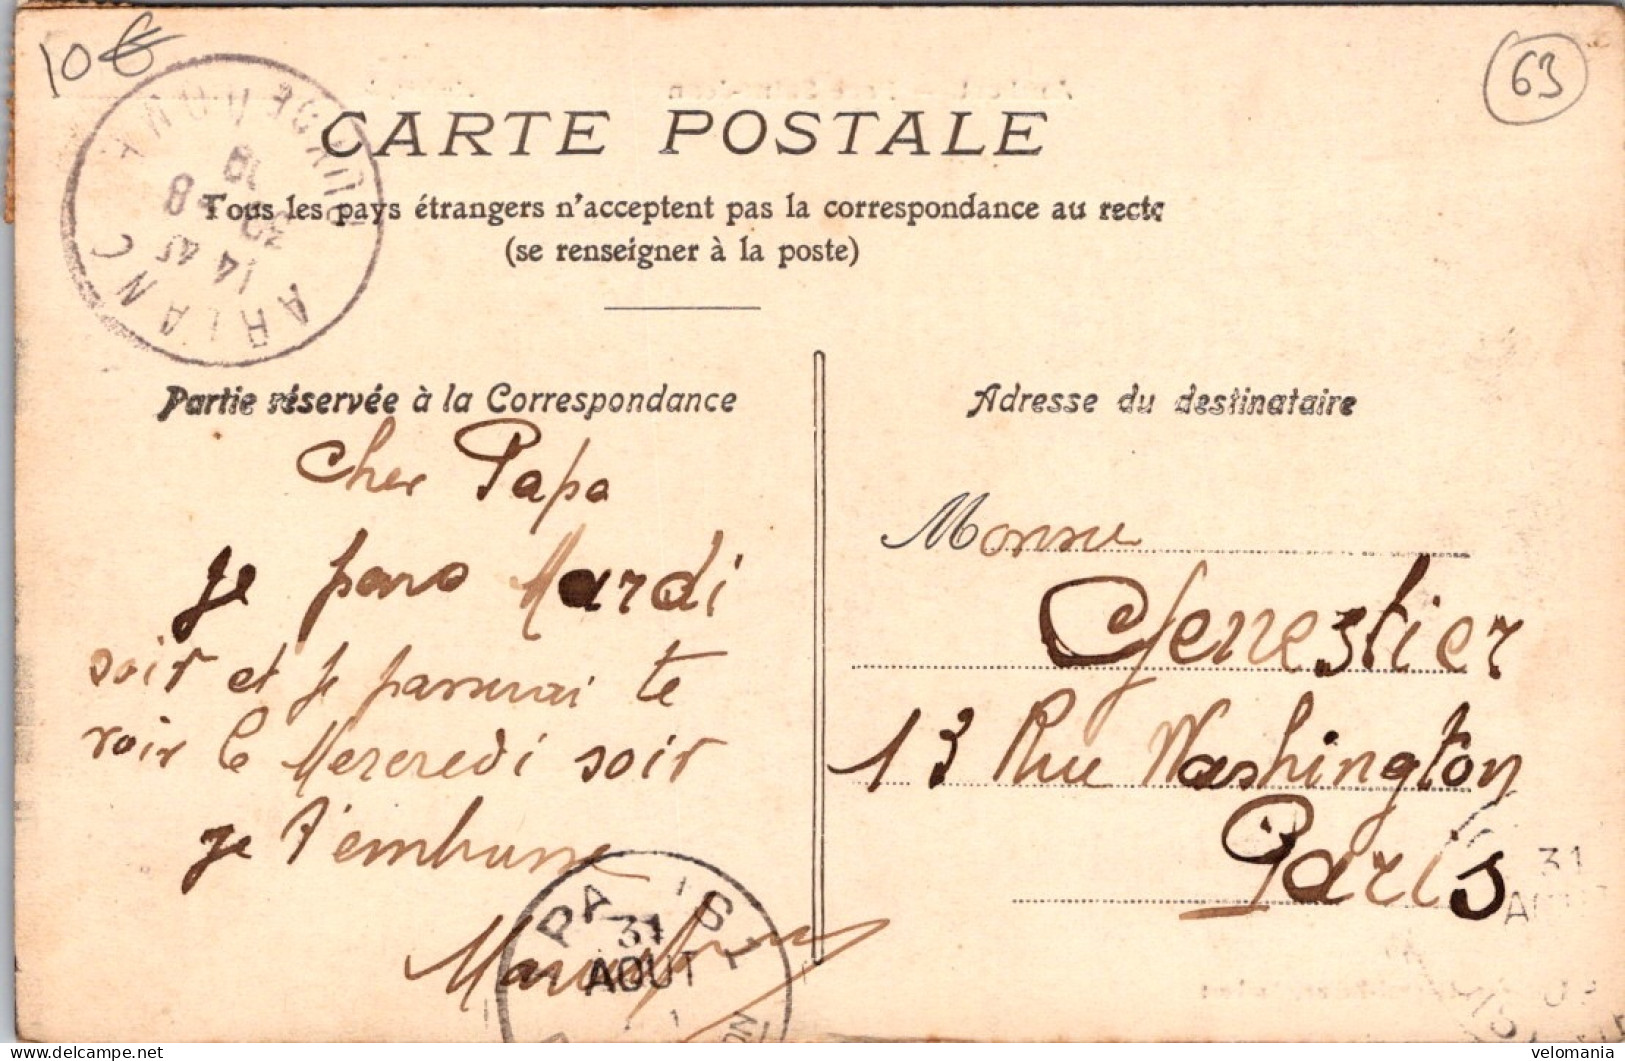 10€
63
CARTE POSTALE
Tous les pays étrangers n'acceptent pas la correspondance au recto
(se renseigner à la poste)
ARLANC
PUY-DE-DOME
14 45
30 -8
Partie réservée à la Correspondance
Cher Papa
Je pars Mardi
soir et je passerai te
voir le Mercredi soir
je t'embrasse
PARIS
31
AOUT
Adresse du destinataire
Monsieur
Genestier
13 Rue Washington
Paris
31
velomania
delcampe.net